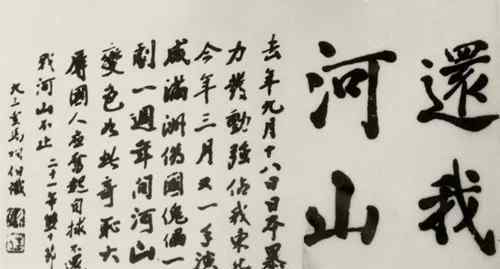 還我
河山
去年九月十八日日本暴
力發動強佔我東北
今年三月又一手演
成滿洲偽國傀儡一
劇一週年間河山
變色如此奇恥大
辱國人應奮起自捄不還
我河山不止 二十一年雙十節
九三叟馬相伯識